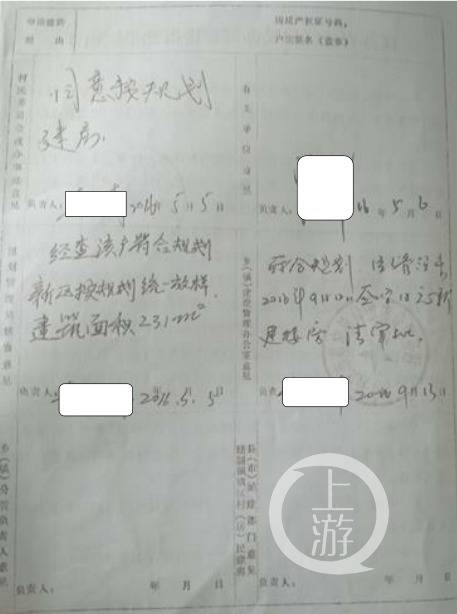 申请建房
理由
因房产权证号码，
户主签名（盖章）
村民委员会或办事处意见
同意按规划
建房.
负责人：
2016年5月5日
有关单位意见
负责人：
16年5月6日
规划管理员核查意见
经查该户符合规划
新区按规划统一放样.
建筑面积231m²
负责人：
2016.5.5日
乡（镇）村建管理办公室意见
符合规划
2016年9月
建楼房 请审批.
负责人：
2016年9月13日
乡（镇）分管负责人意见
负责人：
年 月 日
县（市）城建部门意见
负责人：
年 月 日
上游